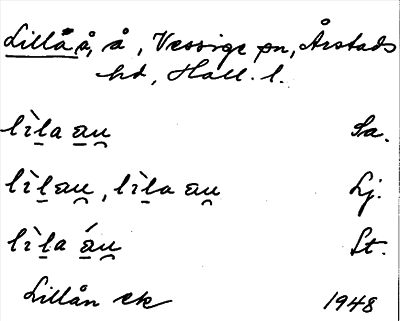 Lillå å, å, Vessige sn, Årstads
hd, Hall. l.
lì̀l̠a a̠u̯ Sa.
lì̀l̠au̯, lì̀l̠a au̯ Lj.
lì̀l̠a á̠u̯ St.
Lillån ek 1948